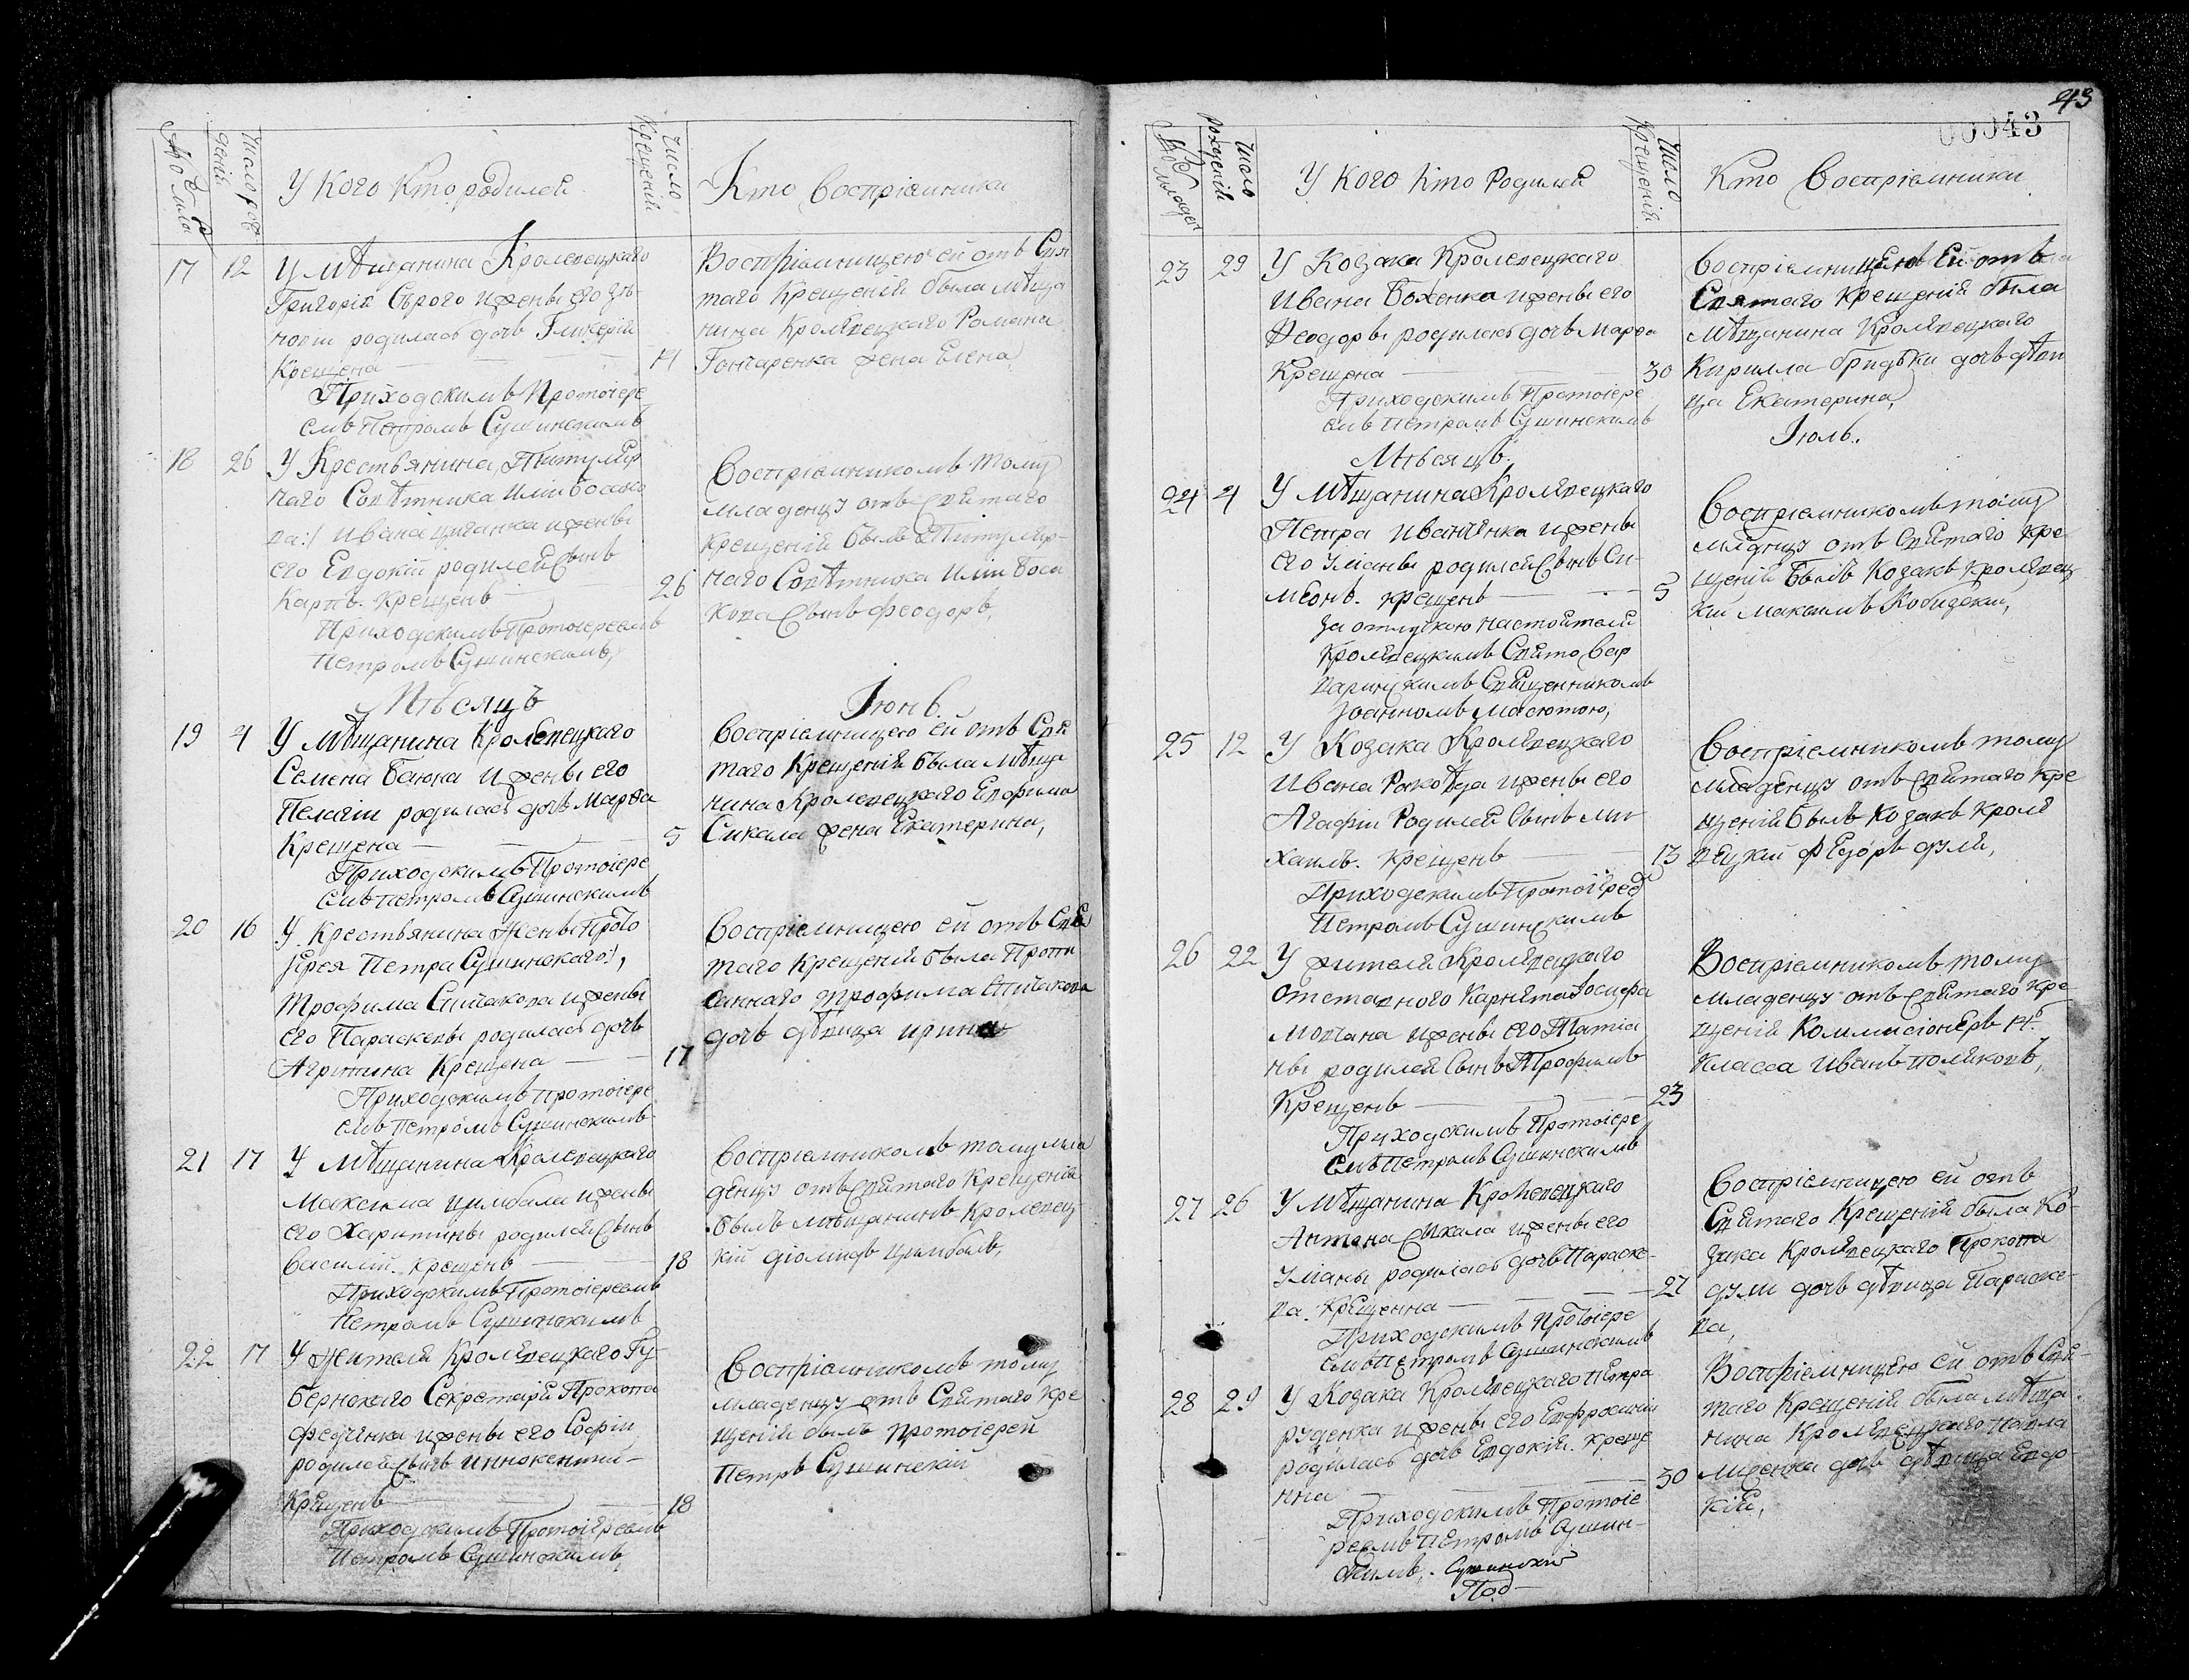 № мла
Число рож
деній
У Кого Кто родился
Число
Крещенія
Кто Воспріемники
17 12 У Мѣщанина Кролевецкаго
Григорія Сѣраго и жены его Зѣ-
новіи родилась дочь Гликерія
Крещена 14
Приходскимъ Протоіере
емъ Петромъ Сушинскимъ
Воспріемницею ей отъ Свя
таго Крещенія была мѣща
нина Кролевецкаго Романа
Гончаренка жена Елена,
18 26 У Крестьянина, Титуляр
наго Совѣтника Иліи
ва:/ Ивана Циганка и жены
его Евдокіи родился Сынъ
Карпъ. Крещенъ 26
Приходскимъ Протоіереемъ
Петромъ Сушинскимъ,
Воспріемникомъ тому
младенцу отъ Святаго
Крещенія былъ Титуляр-
наго Совѣтника Иліи
Сынъ Феодоръ,
Мѣсяцъ Іюнь.
19 4 У Мѣщанина Кролевецкаго
Семена Баюна и жены его
Пелагіи родилась дочь Марфа
Крещена 5
Приходскимъ Протоіере
емъ Петромъ Сушинскимъ
Воспріемницею ей отъ Свя
таго Крещенія была Мѣща
нина Кролевецкаго Ефима
Сикала жена Екатерина,
20 16 У Крестьянина Жены Прото
іерея Петра Сушинскаго:/,
Трофима и жены
его Параскевы родилась дочь
Агрипина Крещена 17
Приходскимъ протоіере
емъ Петромъ Сушинскимъ
Воспріемницею ей отъ Свя
таго Крещенія была Проти
саннаго Трофима
дочь дѣвица Ирина
21 17 У Мѣщанина Кролевецкаго
Максима Цимбала и жены
его Харитины родился Сынъ
Василій. Крещенъ 18
Приходскимъ Протоіереемъ
Петромъ Сушинскимъ
Воспріемникомъ тому мла
денцу отъ Святаго Крещенія
былъ мѣщанинъ Кролевец-
кій Діомидъ Цимбалъ,
22 17 У Жителя Кролевецкаго Гу-
бернскаго Секретаря Прокопа
Федченка и жены его Софіи
родился Сынъ Иннокентий-
Крещенъ 18
Приходскимъ Протоіереемъ
Петромъ Сушинскимъ,
Воспріемникомъ тому
младенцу отъ Святаго Кре
щенія былъ протоіерей
Петръ Сушинскій
43
00043
№ младен
Число
рожденія
У Кого Кто Родился
Число
Крещенія
Кто Воспріемники
23 29 У Козака Кролевецкаго
Ивана Боженка и жены его
Феодоры родилась дочь Марфа
Крещена 30
Приходскимъ Протоіере
емъ Петромъ Сушинскимъ
Воспріемницею Ей отъ
Святаго Крещенія была
Мѣщанина Кролевецкаго
Кирилла Гридѣки дочь дѣви
ца Екатерина,
Мѣсяцъ. Іюль.
24 4 У Мѣщанина Кролевецкаго
Петра Иванченка и жены
его Уліаны родился Сынъ Си-
меонъ. крещенъ 5
За отлучкою настоятеля
Кролевецкимъ Свято Вар
варинскимъ Священникомъ
Іоанномъ Масютою,
Воспріемникомъ тому
младенцу отъ Святаго Кре
щенія былъ Козакъ Кролевец
кій Максимъ Кобизскій,
25 12 У Козака Кролевецкаго
Ивана Раковца и жены его
Агафіи Родился Сынъ Ми
хаилъ. крещенъ 13
Приходскимъ Протоіере
Петромъ Сушинскимъ
Воспріемникомъ тому
младенцу отъ Святаго Кре
щенія былъ Козакъ Кроле
вецкій Федоръ Дуля,
26 22 У жителя Кролевецкаго
отставного Карнета Іосифа
Мовчана и жены его Татіа
ны родился Сынъ Трофимъ
Крещенъ 23
Приходскимъ Протоіере
емъ Петромъ Сушинскимъ
Воспріемникомъ тому
младенцу отъ Святаго Кре
щенія Коммисіонеръ 14.
Класса Иванъ Поляковъ,
27 26 У Мѣщанина Кролевецкаго
Антона Сикала и жены его
Уліаны родилась дочь Параске-
ва. Крещенна 27
Приходскимъ Протоіере
емъ Петромъ Сушинскимъ
Воспріемницею ей отъ
Святаго Крещенія была Ко-
зака Кролевецкаго Прокопа
Дули дочь дѣвица Параске-
ва,
28 29 У Козака Кролевецкаго Петра
Руденка и жены его Евфросиніи
родилась дочь Евдокія. Креще
нна 30
Приходскимъ Протоіе
реемъ Петромъ Сушин-
скимъ,. Сушинскій
Под-
Воспріемницею ей отъ Свя-
таго Крещенія была Мѣща-
нина Кролевецкаго Павла
дочь дѣвица Евдо-
кія,